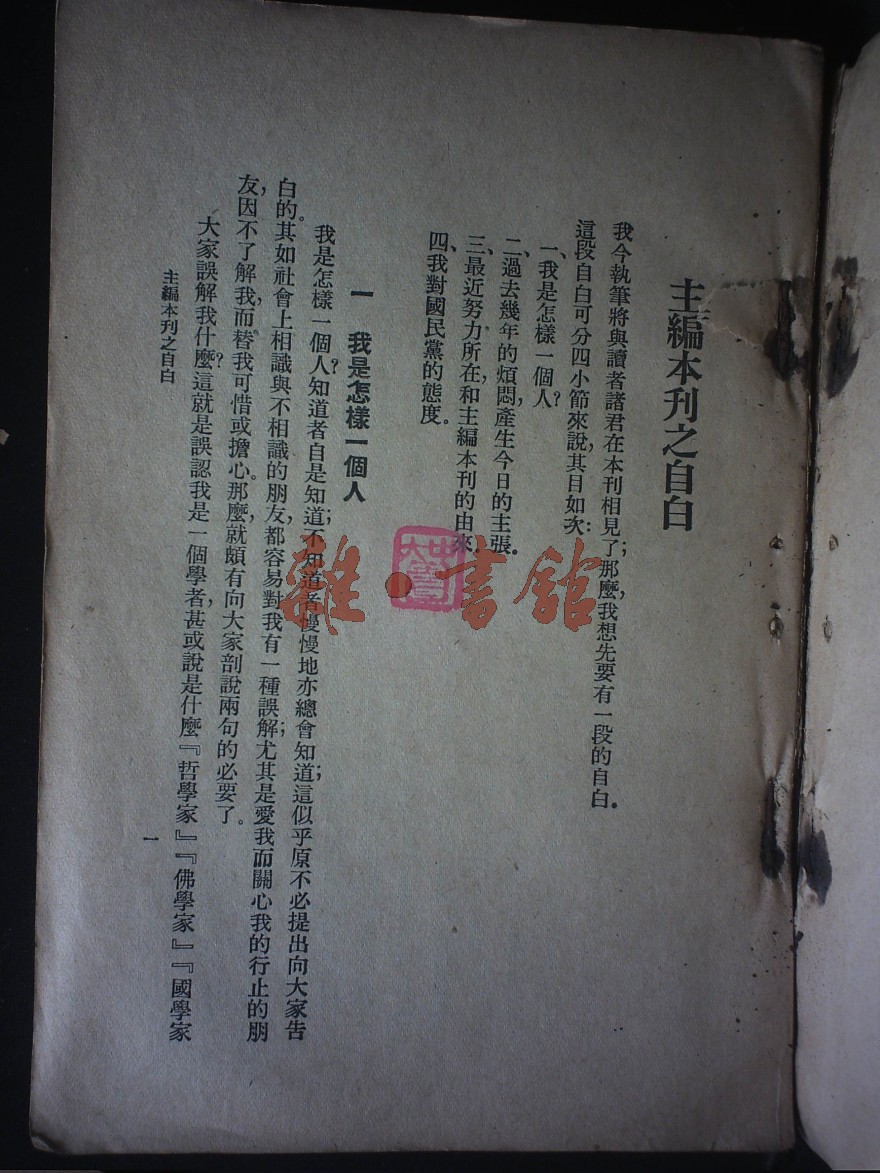 主編本刊之自白
我今執筆將與讀者諸君在本刊相見了；那麼，我想先要有一段的自白。
這段自白可分四小節來說，其目如次：
一、我是怎樣一個人？
二、過去幾年的煩悶，產生今日的主張。
三、最近努力所在，和主編本刊的由來。
四、我對國民黨的態度。
一　我是怎樣一個人
我是怎樣一個人？知道者自是知道；不知道者慢慢地亦總會知道；這似乎原不必提出向大家告
白的。其如社會上相識與不相識的朋友，都容易對我有一種誤解；尤其是愛我而關心我的行止的朋
友，因不了解我，而替我可惜或擔心。那麼，就頗有向大家剖說兩句的必要了。
大家誤解我什麼？這就是誤認我是一個學者，甚或說是什麼『哲學家』『佛學家』『國學家
主編本刊之自白
一
雜·書館